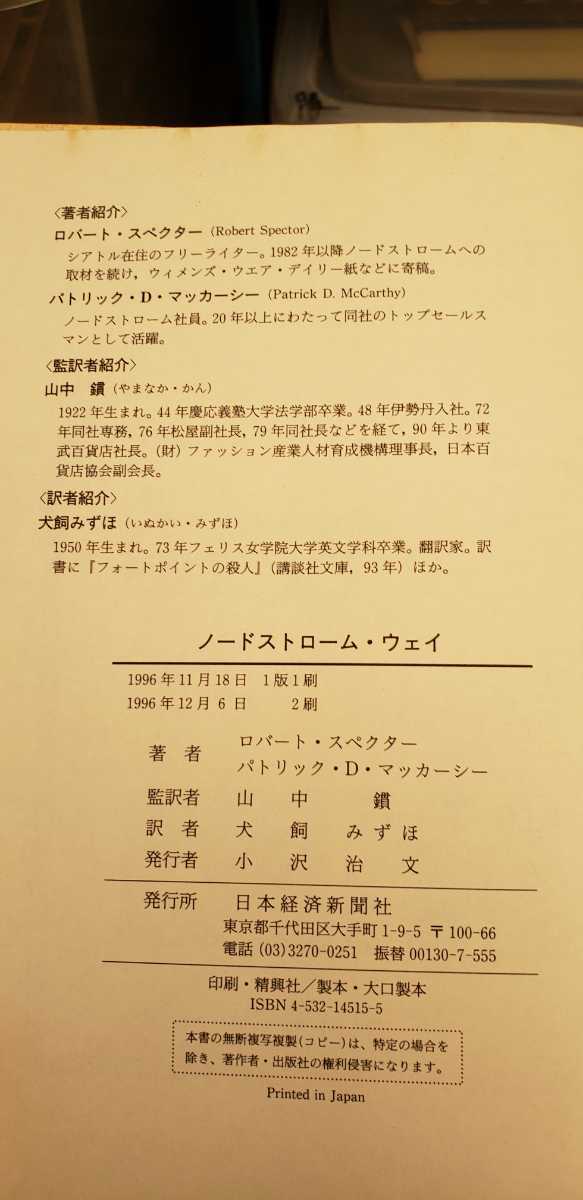 〈著者紹介〉
ロバート・スペクター (Robert Spector)
シアトル在住のフリーライター。1982年以降ノードストロームへの
取材を続け，ウィメンズ・ウエア・デイリー紙などに寄稿。
パトリック・D・マッカーシー (Patrick D. McCarthy)
ノードストローム社員。20年以上にわたって同社のトップセールス
マンとして活躍。
〈監訳者紹介〉
山中 鏆 (やまなか・かん)
1922年生まれ。44年慶応義塾大学法学部卒業。48年伊勢丹入社。72
年同社専務，76年松屋副社長，79年同社長などを経て，90年より東
武百貨店社長。(財) ファッション産業人材育成機構理事長，日本百
貨店協会副会長。
〈訳者紹介〉
犬飼みずほ (いぬかい・みずほ)
1950年生まれ。73年フェリス女学院大学英文学科卒業。翻訳家。訳
書に『フォートポイントの殺人』(講談社文庫，93年) ほか。
ノードストローム・ウェイ
1996年11月18日 1版1刷
1996年12月6日 2刷
著者 ロバート・スペクター
パトリック・D・マッカーシー
監訳者 山中 鏆
訳者 犬飼 みずほ
発行者 小沢治文
発行所 日本経済新聞社
東京都千代田区大手町1-9-5 〒100-66
電話 (03)3270-0251 振替 00130-7-555
印刷・精興社／製本・大口製本
ISBN 4-532-14515-5
本書の無断複写複製(コピー)は、特定の場合を
除き、著作者・出版社の権利侵害になります。
Printed in Japan